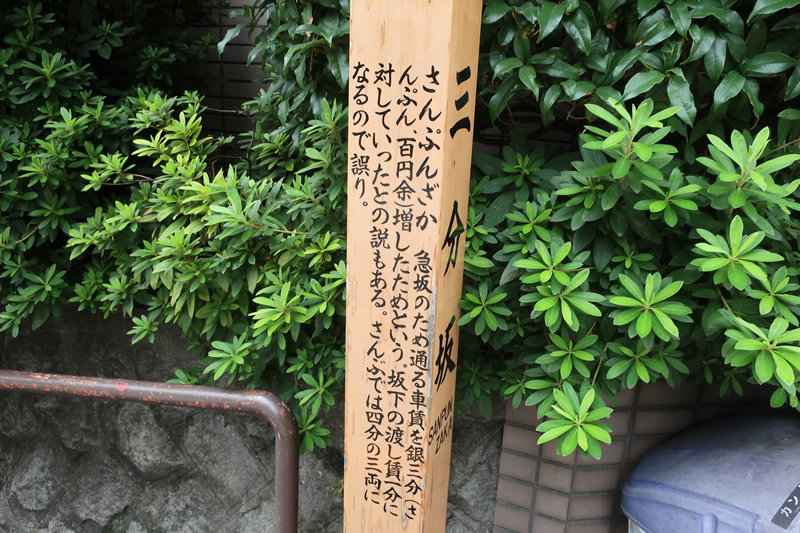 三分坂
SANPUN
ZAKA
さんぷんざか　急坂のため通る車賃を銀三分(さ
んぷん、百円余)増したためという。坂下の渡し賃一分に
対していったとの説もある。さんぶでは四分の三両に
なるので誤り。
カン